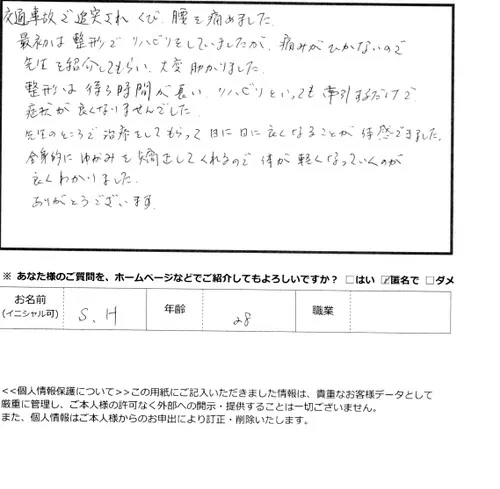 交通事故で追突されくび、腰を痛めました。
最初は整形でリハビリをしていましたが、痛みがひかないので
先生を紹介してもらい、大変助かりました。
整形は待ち時間が長い、リハビリといっても牽引するだけで
症状が良くなりませんでした。
先生のところで治療をしてもらって日に日に良くなることが体感できました。
全身的にゆがみを矯正してくれるので体が軽くなっていくのが
良くわかりました。
ありがとうございます
※ あなた様のご質問を、ホームページなどでご紹介してもよろしいですか？ □はい ☑匿名で □ダメ
お名前 (イニシャル可) S.H 年齢 28 職業
<<個人情報保護について>>この用紙にご記入いただきました情報は、貴重なお客様データとして
厳重に管理し、ご本人様の許可なく外部への開示・提供することは一切ございません。
また、個人情報はご本人様からのお申出により訂正・削除いたします。